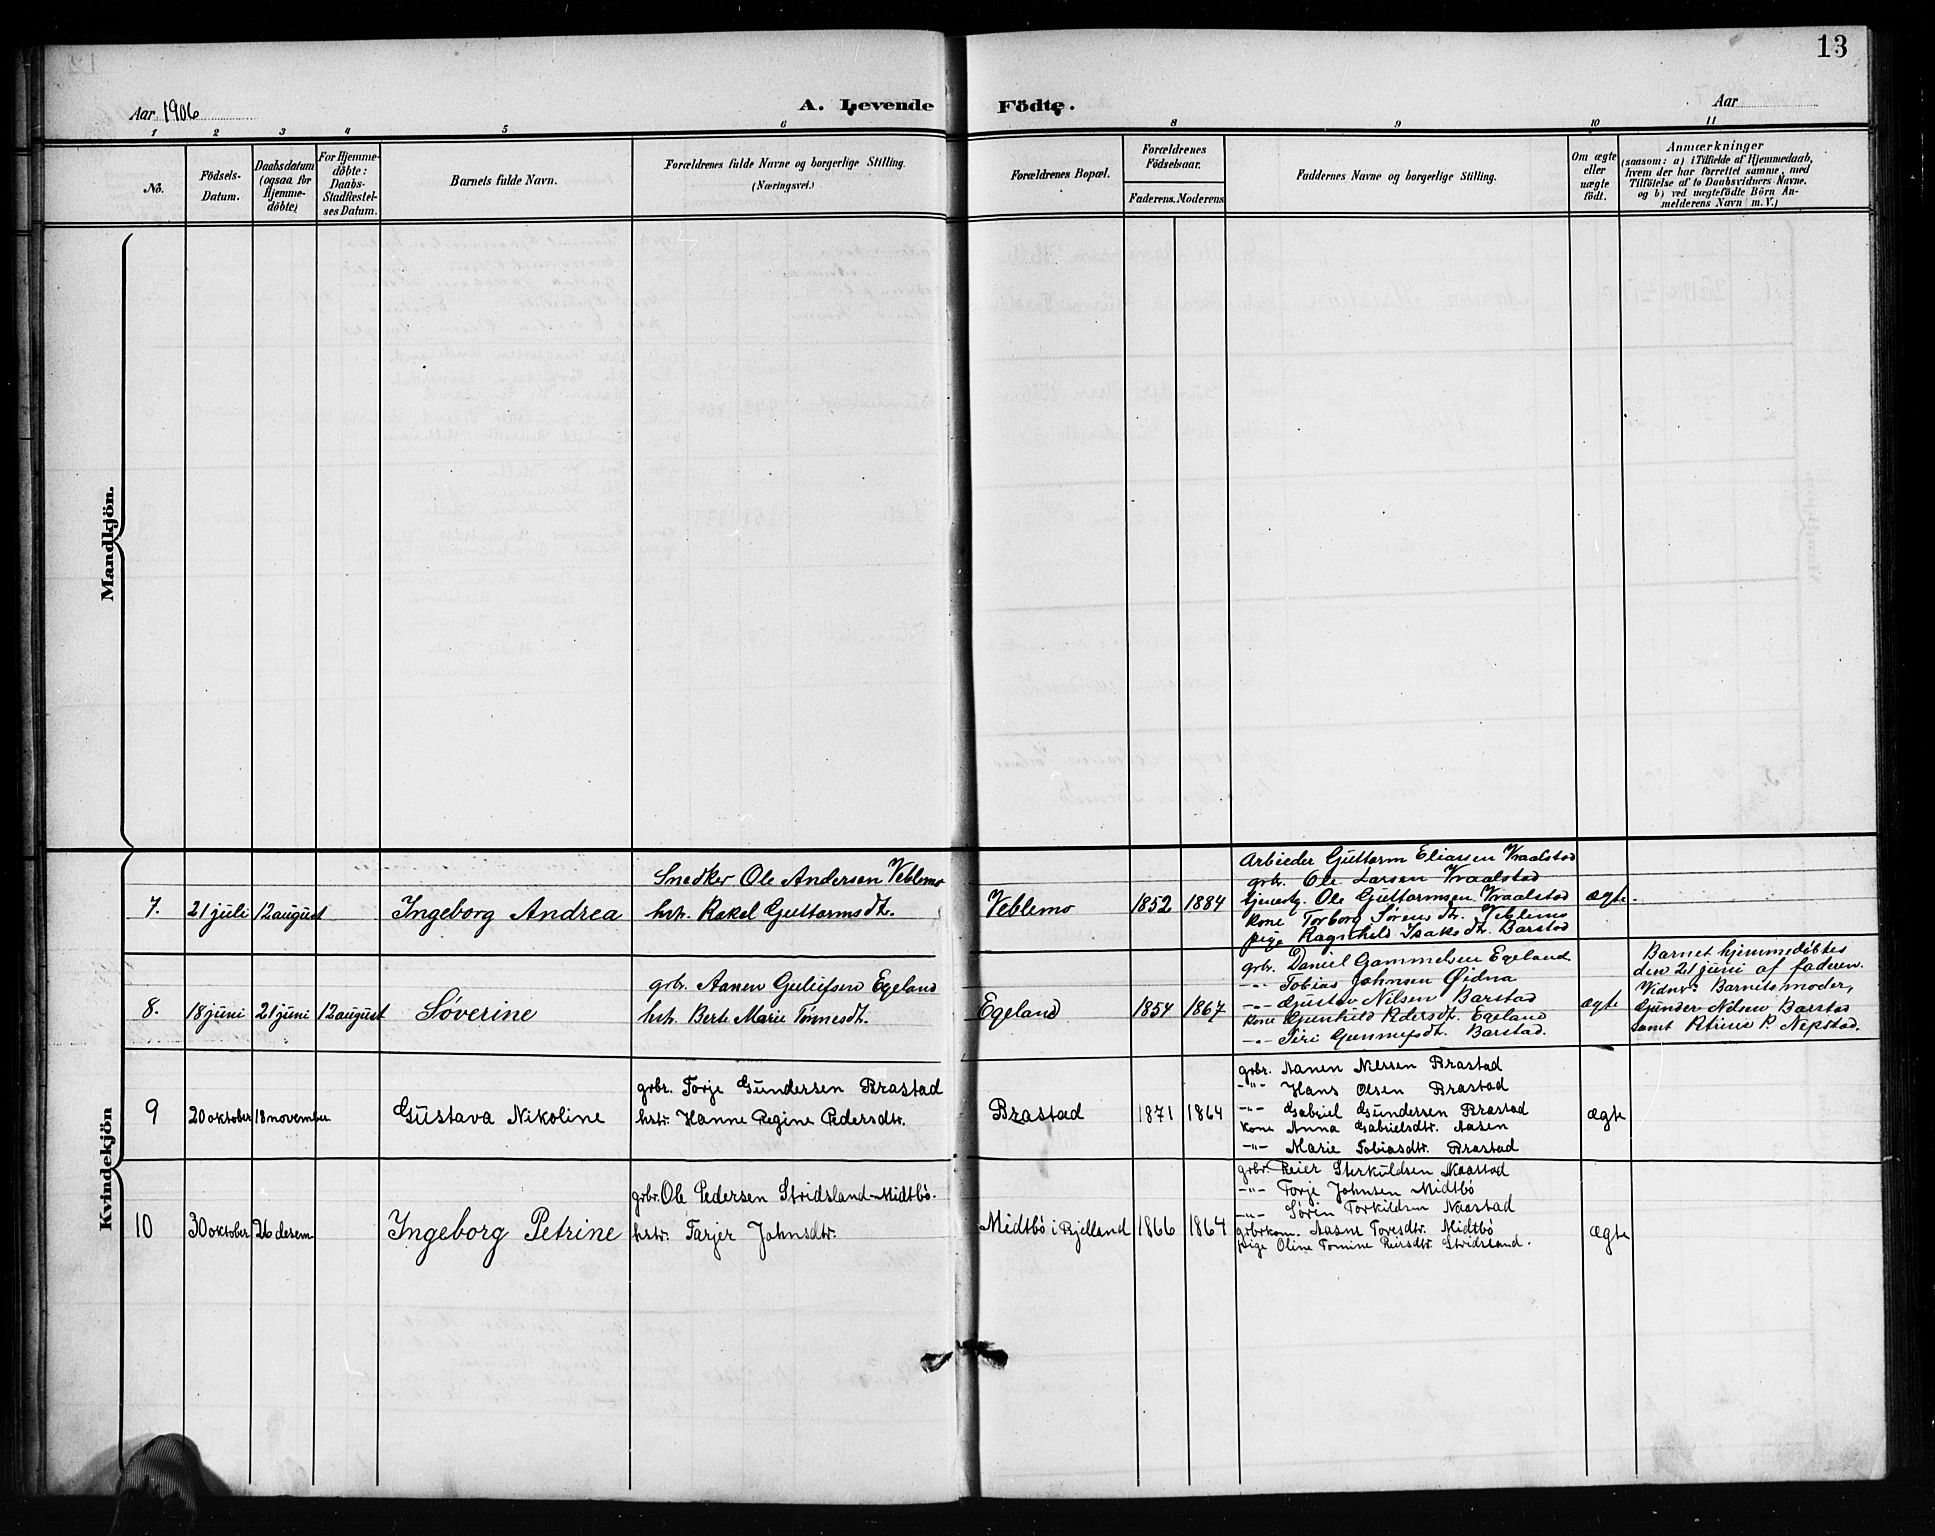 13
Aar 1906
A. Levende Födte.
Aar
1 2 3 4 5 6 8 9 10 11
No.
Födsels-
Datum.
Daabsdatum
(ogsaa for
Hjemme-
döbte)
For Hjemme-
döbte:
Daabs-
Stadfæstel-
ses Datum.
Barnets fulde Navn.
Forældrenes fulde Navne og borgerlige Stilling.
(Næringsvei.)
Forældrenes Bopæl.
Forældrenes
Födselsaar.
Faderens. Moderens.
Faddernes Navne og borgerlige Stilling.
Om ægte
eller
uægte
födt.
Anmærkninger
(saasom: a) i Tilfælde af Hjemmedaab,
hvem der har forrettet samme, med
Tilföielse af to Daabsvidners Navne.
og b) ved uægtefödte Börn An-
melderens Navn m. V.)
Mandkjön.
Kvindekjön
7. 21 juli 12 august
Ingeborg Andrea
Snedker Ole Andersen Veblemo
hst. Rakel Guttormsdt.
Veblemo
1852 1884
Arbeider Guttorm Eliassen Vraalstad
grbr. Ole Larsen Vraalstad
Ole Guttormsen Vraalstad
kone Torborg Sørensdt. Veblemo
pige Ragnhild Isaksdt. Barstad
ægte.
8. 18 juni 21 juni 12 august
Søverine
grbr. Aanen Guleifsen Egeland
hst. Berte Marie Tønnesdt.
Egeland
1854 1867
grbr. Daniel Gammelsen Egeland
-"- Tobias Johnsen Øidna
-"- Gustav Nilsen Barstad
kone Gunhild Pedersdt. Egeland
-"- Siri Gunnufsdt. Barstad.
ægte
Barnet hjemmedøbtes
den 21 juni af faderen.
Vidner: Barnets moder,
Gunder Nilsen Barstad
samt Petrine P. Nepstad.
9 20 oktober 18 november
Gustava Nikoline
grbr. Torje Gundersen Brastad
hstr. Hanne Regine Pedersdtr.
Brastad
1871 1864
grbr. Aanen Nilssen Brastad
-"- Hans Olsen Brastad
-"- Gabriel Gundersen Brastad
kone Anna Gabrielsdtr. Aasen
-"- Marie Tobiasdtr. Brastad
ægte
10 30 oktober 26 desem
Ingeborg Petrine
grbr. Ole Pedersen Stridsland-Midtbö.
hstr. Tarjer Johnsdtr.
Midtbö i Bjelland
1866 1864
grbr. Reier Sterkuldsen Naastad
-"- Torje Johnsen Midtbö
-"- Sörin Torkildsen Naastad
grbrkom. Aasne Toresdtr. Midtbö
pige Oline Tomine Reiersdtr. Stridsland.
ægte